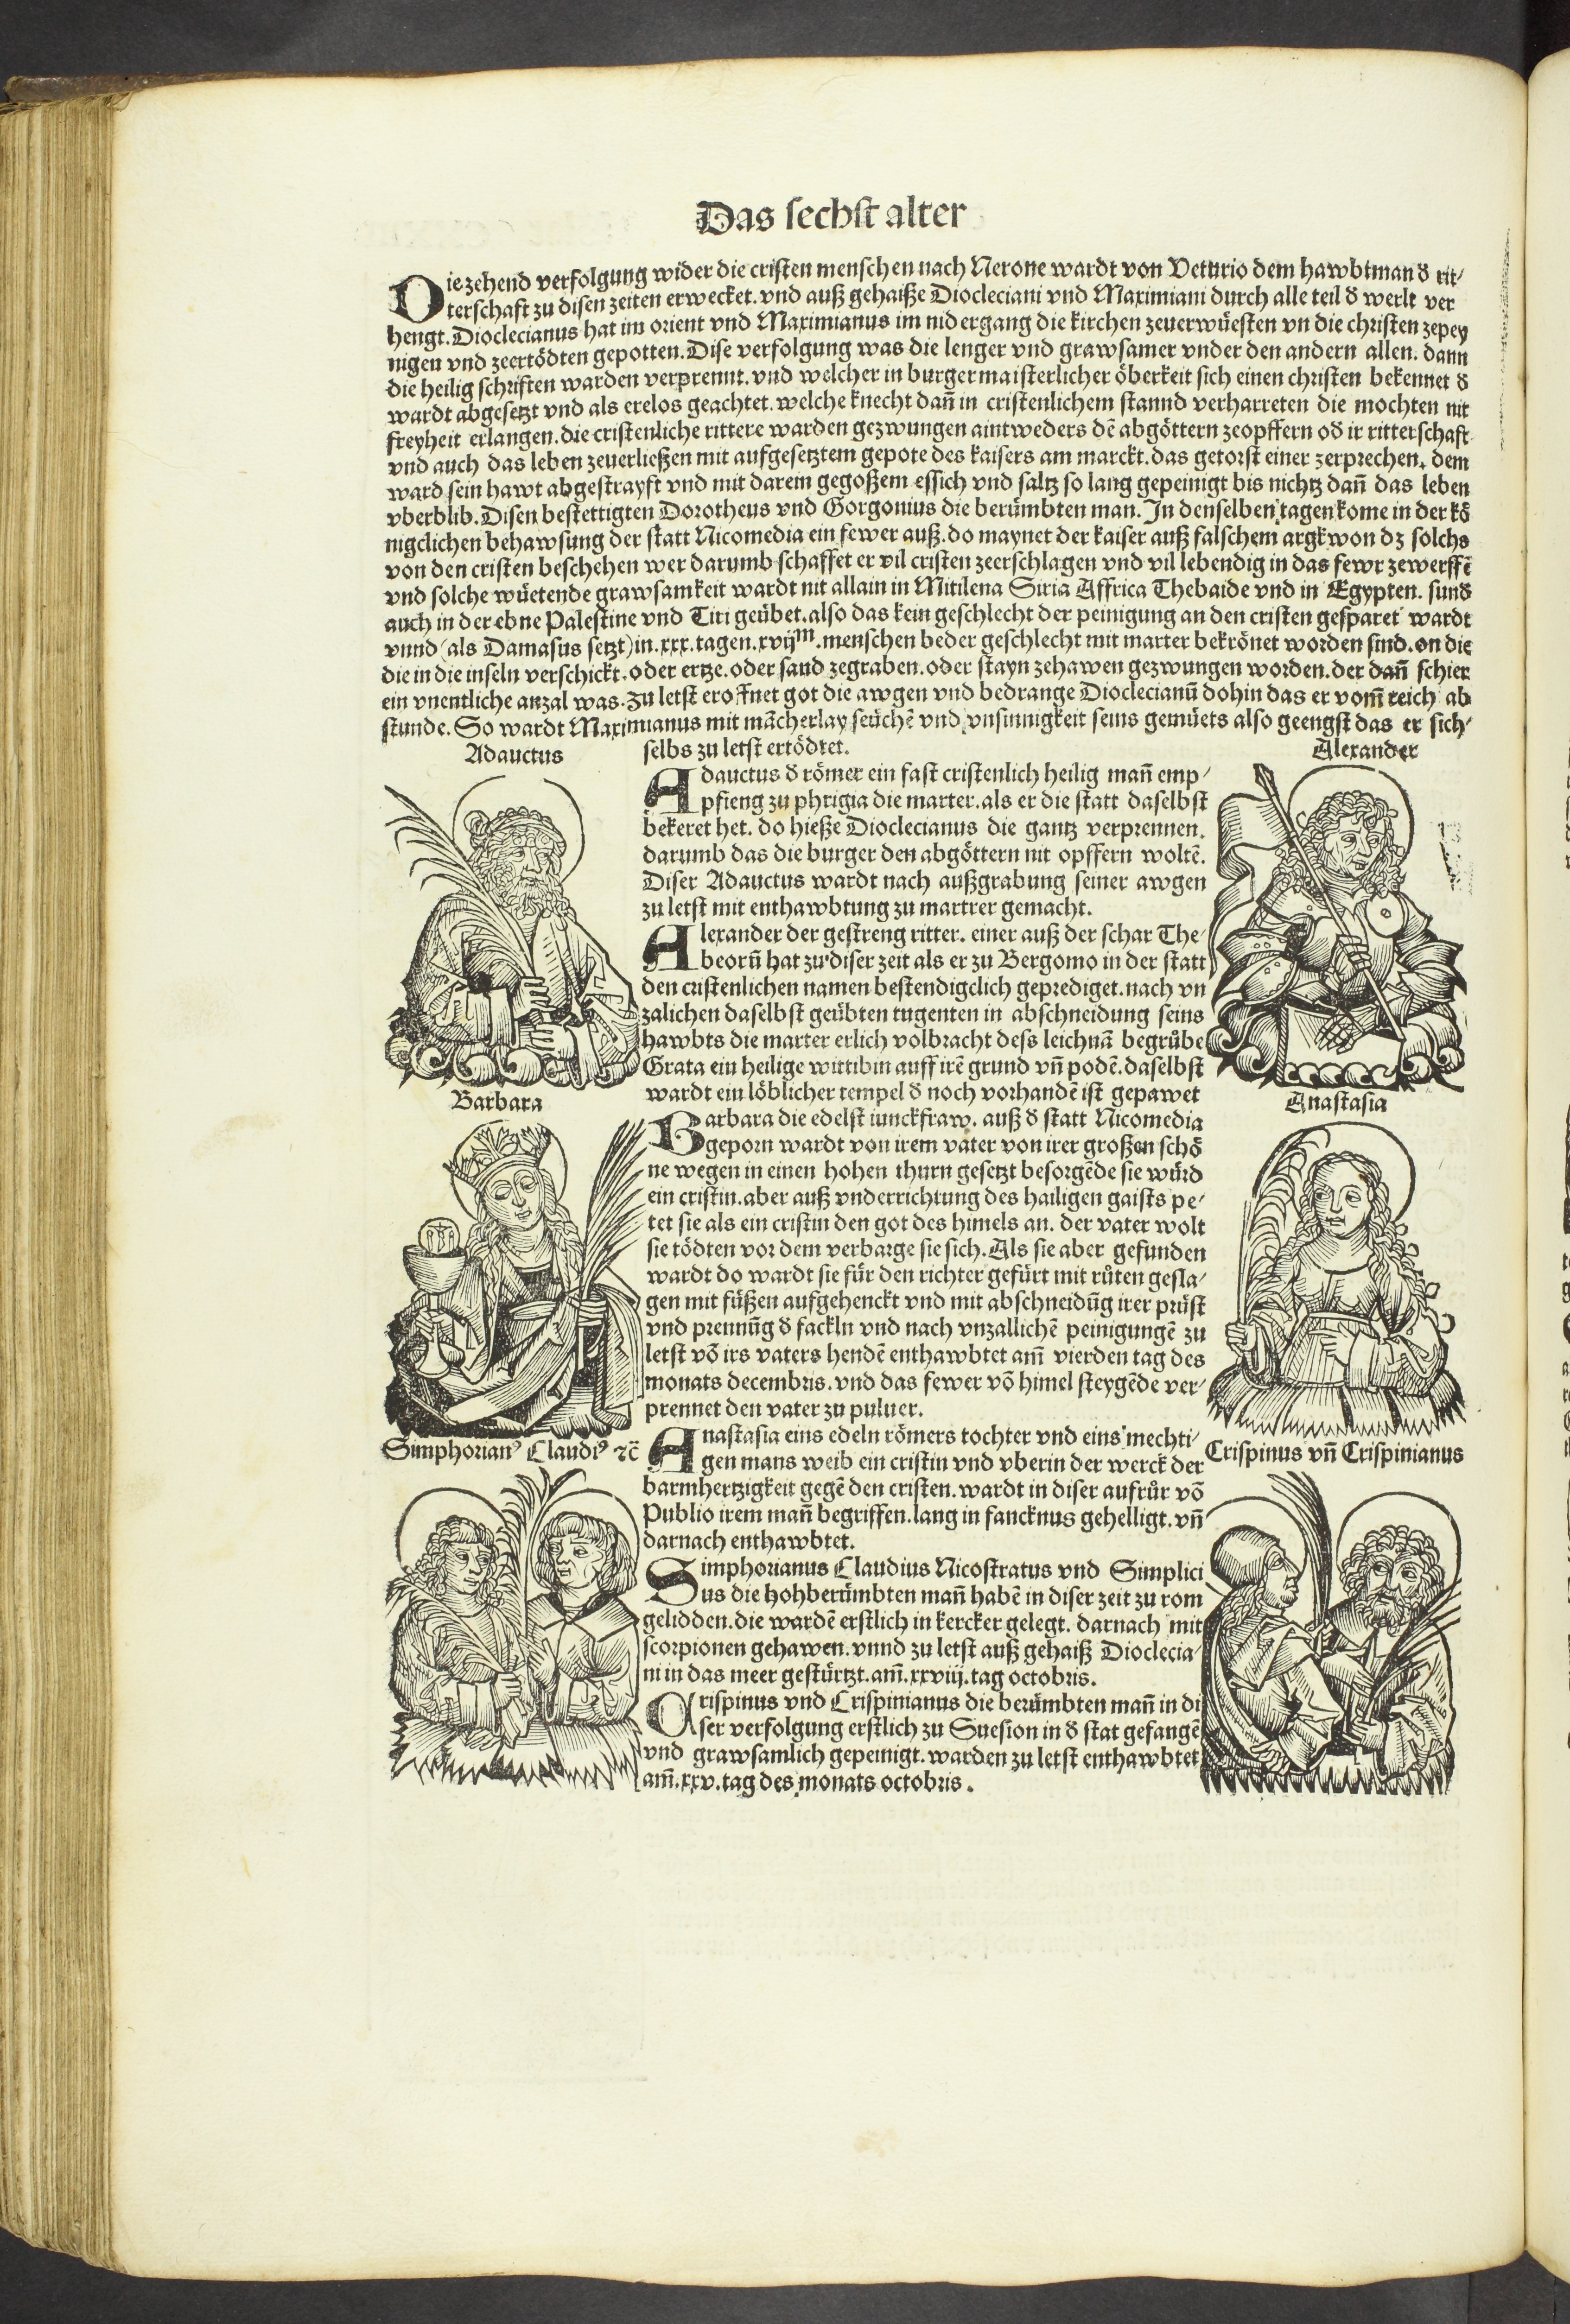 Das sechst alter
Die zehend verfolgung wider die cristen menschen nach Nerone wardt von Veturio dem hawbtman d̕ rit/
terschaft zu disen zeiten erwecket. vnd auß gehaiße Diocleciani vnd Maximiani durch alle teil d̕ werlt ver
hengt. Dioclecianus hat im orient vnd Maximianus im nidergang die kirchen zeuerwüesten vn die christen zepey
nigen vnd zeertödten gepotten. Dise verfolgung was die lenger vnd grawsamer vnder den andern allen. dann
die heilig schriften warden verprennt. vnd welcher in burgermaisterlicher öberkeit sich einen christen bekennet d̕
wardt abgesetzt vnd als erelos geachtet. welche knecht dañ in cristenlichem stannd verharreten die mochten nit
freyheit erlangen. die cristenliche rittere warden gezwungen aintweders dē abgöttern zeopffern od̕ ir ritterschaft
vnd auch das leben zeuerließen mit aufgesetztem gepote des kaisers am marckt. das getorst einer zerprechen. dem
ward sein hawt abgestrayft vnd mit darein gegoßem essich vnd saltz so lang gepeinigt bis nichtz dañ das leben
vberblib. Disen bestettigten Dorotheus vnd Gorgonius die berümbten man. In denselben tagen kome in der kö
nigclichen behawsung der statt Nicomedia ein fewer auß. do maynet der kaiser auß falschem argkwon dz solchs
von den cristen beschehen wer darumb schaffet er vil cristen zeerschlagen vnd vil lebendig in das fewr zewerffē
vnd solche wüetende grawsamkeit wardt nit allain in Mitilena Siria Affrica Thebaide vnd in Egypten. sund̕
auch in der ebne Palestine vnd Tiri geübet. also das kein geschlecht der peinigung an den cristen gesparet wardt
vnnd (als Damasus setzt) in .xxx. tagen. xvijᵐ. menschen beder geschlecht mit marter bekrönet worden sind. on die
die in die inseln verschickt. oder ertze. oder sand zegraben. oder stayn zehawen gezwungen worden. der dañ schier
ein vnentliche anzal was. Zu letst eroffnet got die awgen vnd bedrange Dioclecianū dohin das er vom̄ reich ab
stunde. So wardt Maximianus mit mācherlay seüchē vnd vnsinnigkeit seins gemüets also geengst das er sich/
selbs zu letst ertödtet.
Adauctus
Alexander
Adauctus d̕ römer ein fast cristenlich heilig mañ emp/
pfieng zu phrigia die marter. als er die statt daselbst
bekeret het. do hieße Dioclecianus die gantz verprennen.
darumb das die burger den abgöttern nit opffern woltē.
Diser Adauctus wardt nach außgrabung seiner awgen
zu letst mit enthawbtung zu martrer gemacht.
Alexander der gestreng ritter. einer auß der schar The/
beorū hat zu diser zeit als er zu Bergomo in der statt
den cristenlichen namen bestendigclich geprediget. nach vn
zalichen daselbst geübten tugenten in abschneidung seins
hawbts die marter erlich volbracht dess leichnā begrůbe
Grata ein heilige wittibin auff irē grund vñ podē. daselbst
wardt ein löblicher tempel d̕ noch vorhandē ist gepawet
Barbara
Anastasia
Barbara die edelst iunckfraw. auß d̕ statt Nicomedia
geporn wardt von irem vater von irer großen schö
ne wegen in einen hohen thurn gesetzt besorgēde sie würd
ein cristin. aber auß vnderrichtung des hailigen gaists pe/
tet sie als ein cristin den got des himels an. der vater wolt
sie tödten vor dem verbarge sie sich. Als sie aber gefunden
wardt do wardt sie für den richter gefürt mit růten gesla/
gen mit füßen aufgehenckt vnd mit abschneidūg irer prüst
vnd prennūg d̕ fackln vnd nach vnzallichē peinigungē zu
letst vō irs vaters hendē enthawbtet am̄ vierden tag des
monats decembris. vnd das fewer vō himel steygēde ver/
prennet den vater zu puluer.
Simphorianꝰ Claudiꝰ ꝛc̄
Crispinus vñ Crispinianus
Anastasia eins edeln römers tochter vnd eins mechti/
gen mans weib ein cristin vnd vberin der werck der
barmhertzigkeit gegē den cristen. wardt in diser aufrůr vō
Publio irem mañ begriffen. lang in fancknus gehelligt. vñ
darnach enthawbtet.
Simphorianus Claudius Nicostratus vnd Simplici
us die hohberümbten mañ habē in diser zeit zu rom
gelidden. die wardē erstlich in kercker gelegt. darnach mit
scorpionen gehawen. vnnd zu letst auß gehaiß Dioclecia/
ni in das meer gestürtzt. am̄. xxviij. tag octobris.
Crispinus vnd Crispinianus die berümbten mañ in di
ser verfolgung erstlich zu Suesion in d̕ stat gefangē
vnd grawsamlich gepeinigt. warden zu letst enthawbtet
am̄. xxv. tag des monats octobris.